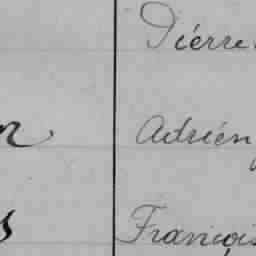 Piérre
Adrién
François